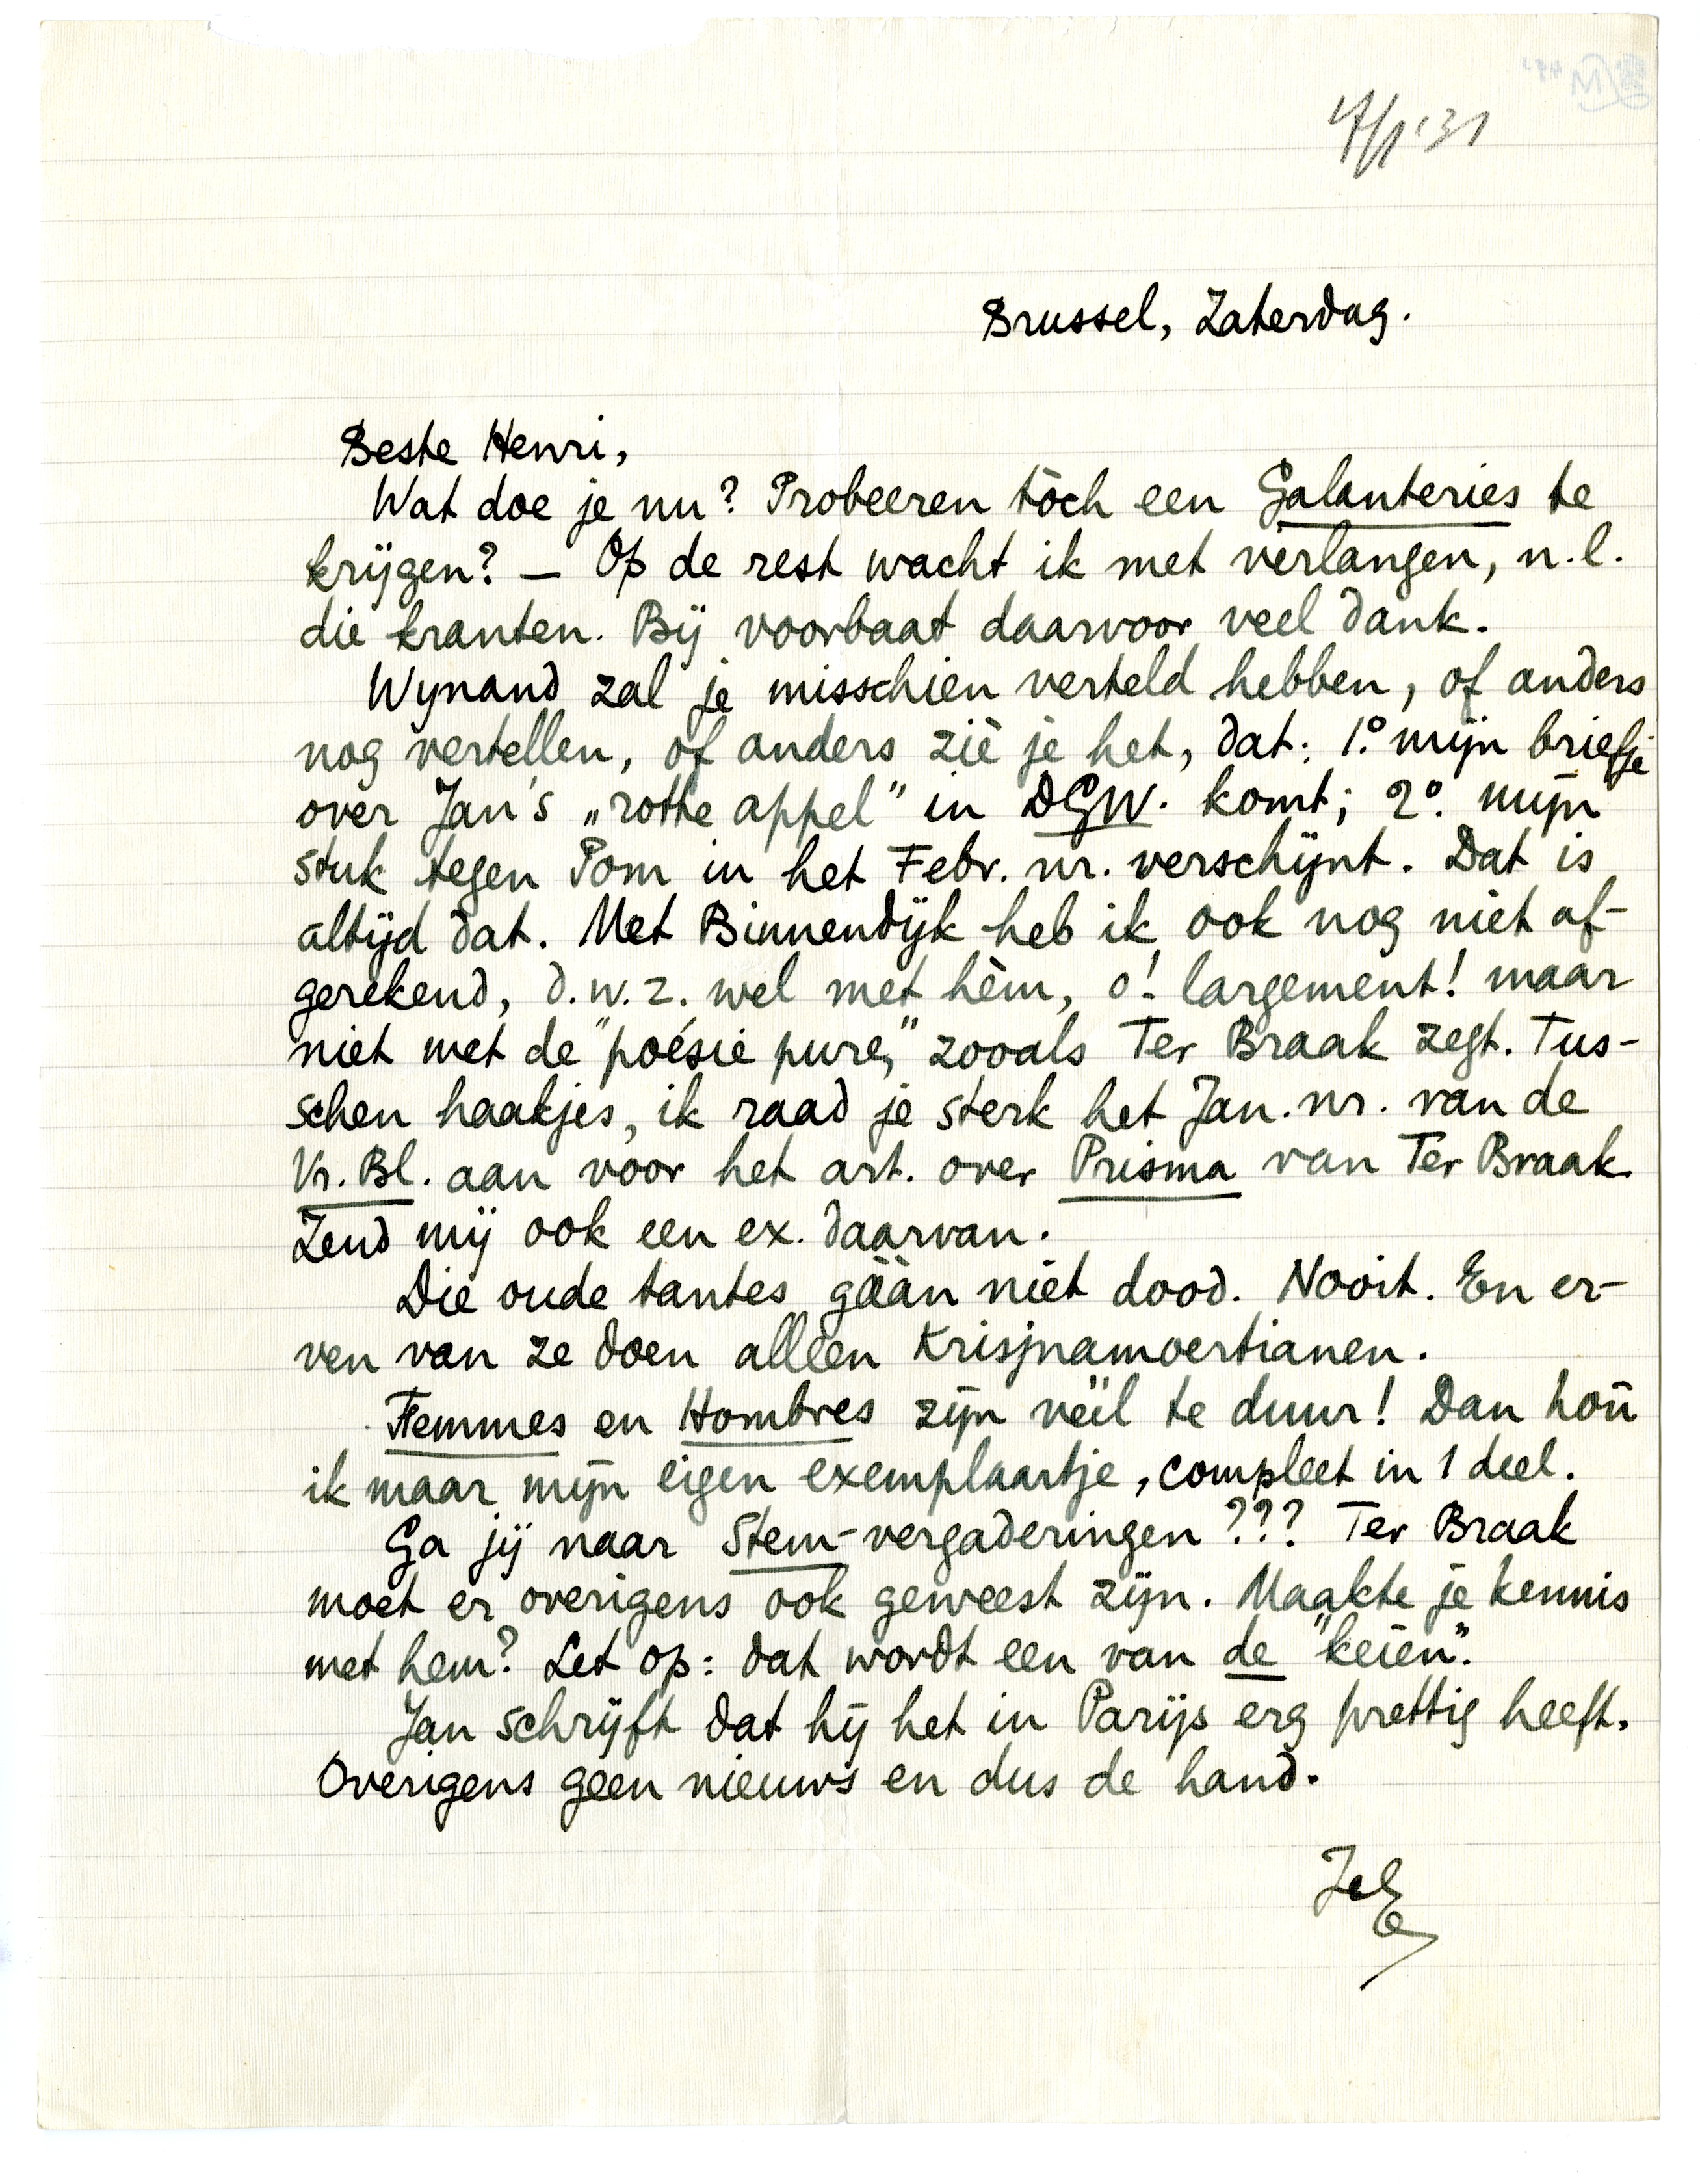 17/1'31
Brussel, Zaterdag.
Beste Henri,
Wat doe je nu? Probeeren tòch een Galanteries te
krijgen? — Op de rest wacht ik met verlangen, n.l.
die kranten. Bij voorbaat daarvoor veel dank.
Wynand zal je misschien verteld hebben, of anders
nog vertellen, of anders zie je het, dat: 1.º mijn briefje
over Jan's „rotte appel” in DGW. komt; 2º. mijn
stuk tegen Pom in het Febr. nr. verschijnt. Dat is
altijd dat. Met Binnendijk heb ik ook nog niet af-
gerekend, d.w.z. wel met hèm, o! largement! maar
niet met de "poésie pure," zooals Ter Braak zegt. Tus-
schen haakjes, ik raad je sterk het Jan. nr. van de
Vr. Bl. aan voor het art. over Prisma van Ter Braak.
Zend mij ook een ex. daarvan.
Die oude tantes gààn niet dood. Nooit. En er-
ven van ze doen alleen Krisjnamoertianen.
Femmes en Hombres zijn veël te duur! Dan hoü
ik maar mijn eigen exemplaartje, compleet in 1 deel.
Ga jij naar Stem-vergaderingen??? Ter Braak
moet er overigens ook geweest zijn. Maakte je kennis
met hem? Let op: dat wordt een van de "keien".
Jan schrijft dat hij het in Parijs erg prettig heeft.
Overigens geen nieuws en dus de hand.